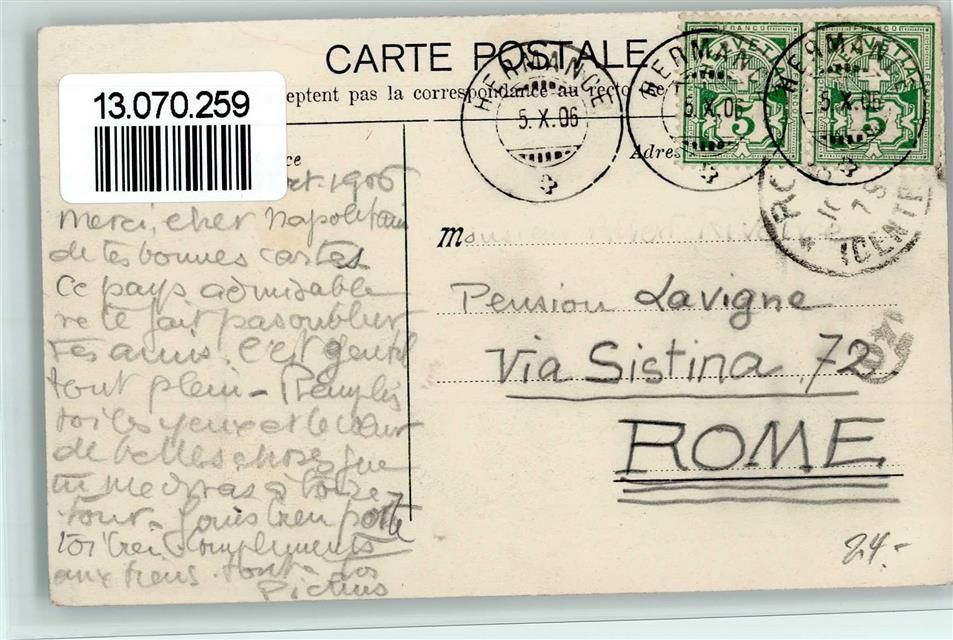 CARTE POSTALE
13.070.259
ceptent pas la correspondance au recto
HERMANCE
5.X.06
HERMAN
5.X.06
HERMAN
5.X.06
FRANCO
HELVETIA
5
FRANCO
HELVETIA
5
ICENTR
Adres
ce
oct. 1906
Merci, cher Napolitain
de tes bonnes cartes
Ce pays admirable
ne te fait pas oublier
tes amis. C'est gentil
tout plein - Remplis
toi les yeux et le cœur
de belles choses que
tu me diras à ton re-
tour - Jouis bien porte
toi bien Compliments
aux tiens. tout à toi
Pictus
Monsieur
Pension Lavigne
Via Sistina, 72
ROME
24.-